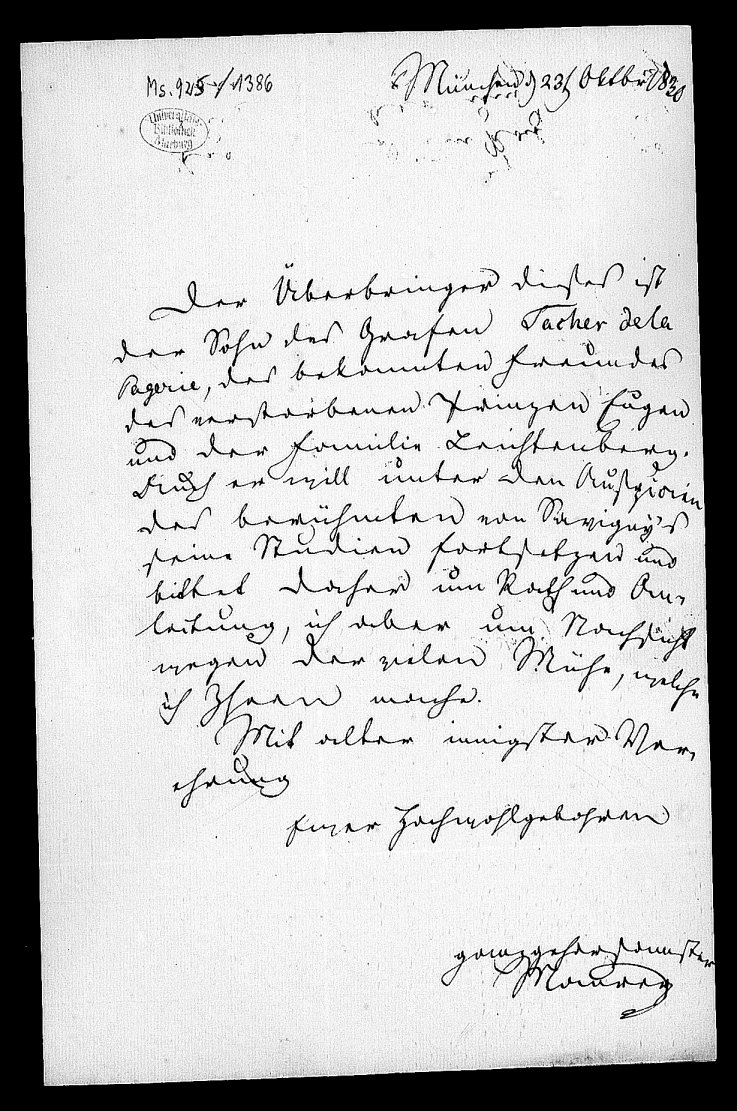 Ms. 925/1386
München d 23t Oktbr 1830
Universitäts-
Bibliothek
Marburg
Der Überbringer dieses ist
der Sohn des Grafen Tacher de la
Pagerie, des bekannten Freundes
des verstorbenen Prinzen Eugen
und der Familie Leichtenberg.
Auch er will unter den Auspizien
des berühmten von Savigny's
seine Studien fortsetzen und
bittet daher um Rath und An-
leitung, ich aber um Nachsicht
wegen der vielen Mühe, welche
ich Ihnen mache.
Mit alter innigster Ver-
ehrung
Euer Hochwohlgebohren
ganzgehorsamster
Maurer